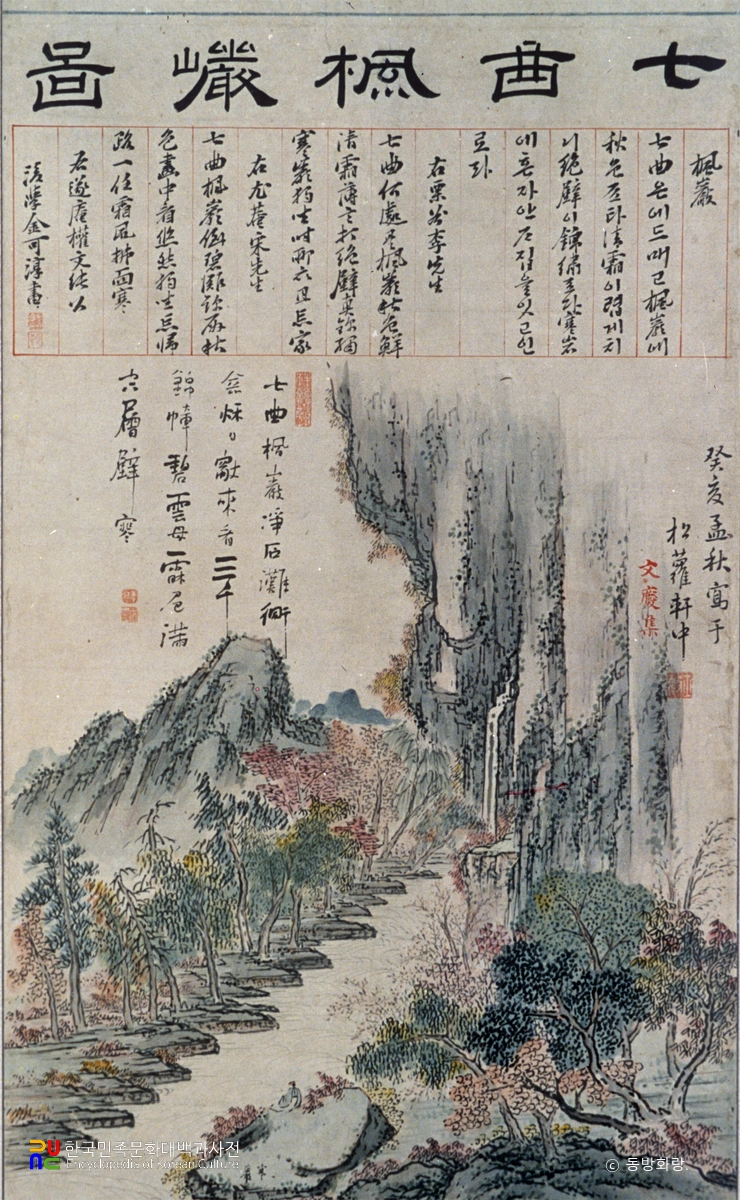 七曲楓巖圖
楓巖
七曲은에드매고楓巖애
秋色됴타淸霜이렵게치
니絶壁이錦繡로다寒岩
에혼자안즈집을잇고인
로라
右栗谷李先生
七曲何處是楓巖秋色鮮
淸霜薄言打絶壁眞錦繡
寒巖獨坐時聊亦且忘家
右尤菴宋先生
七曲楓巖倒碧灘錦屛秋
色畵中看悠然獨坐忘歸
路一任霜風拂面寒
右遂庵權文純公
後學金可淳書
癸亥孟秋寫于
松蘿軒中
文慶集
七曲楓巖淨石灘
禽穌々獻來看三千
錦幛碧雲母一霜滿
空層壁寒
한국민족문화대백과사전
Encyclopedia of Korean Culture
ⓒ 동방화랑.